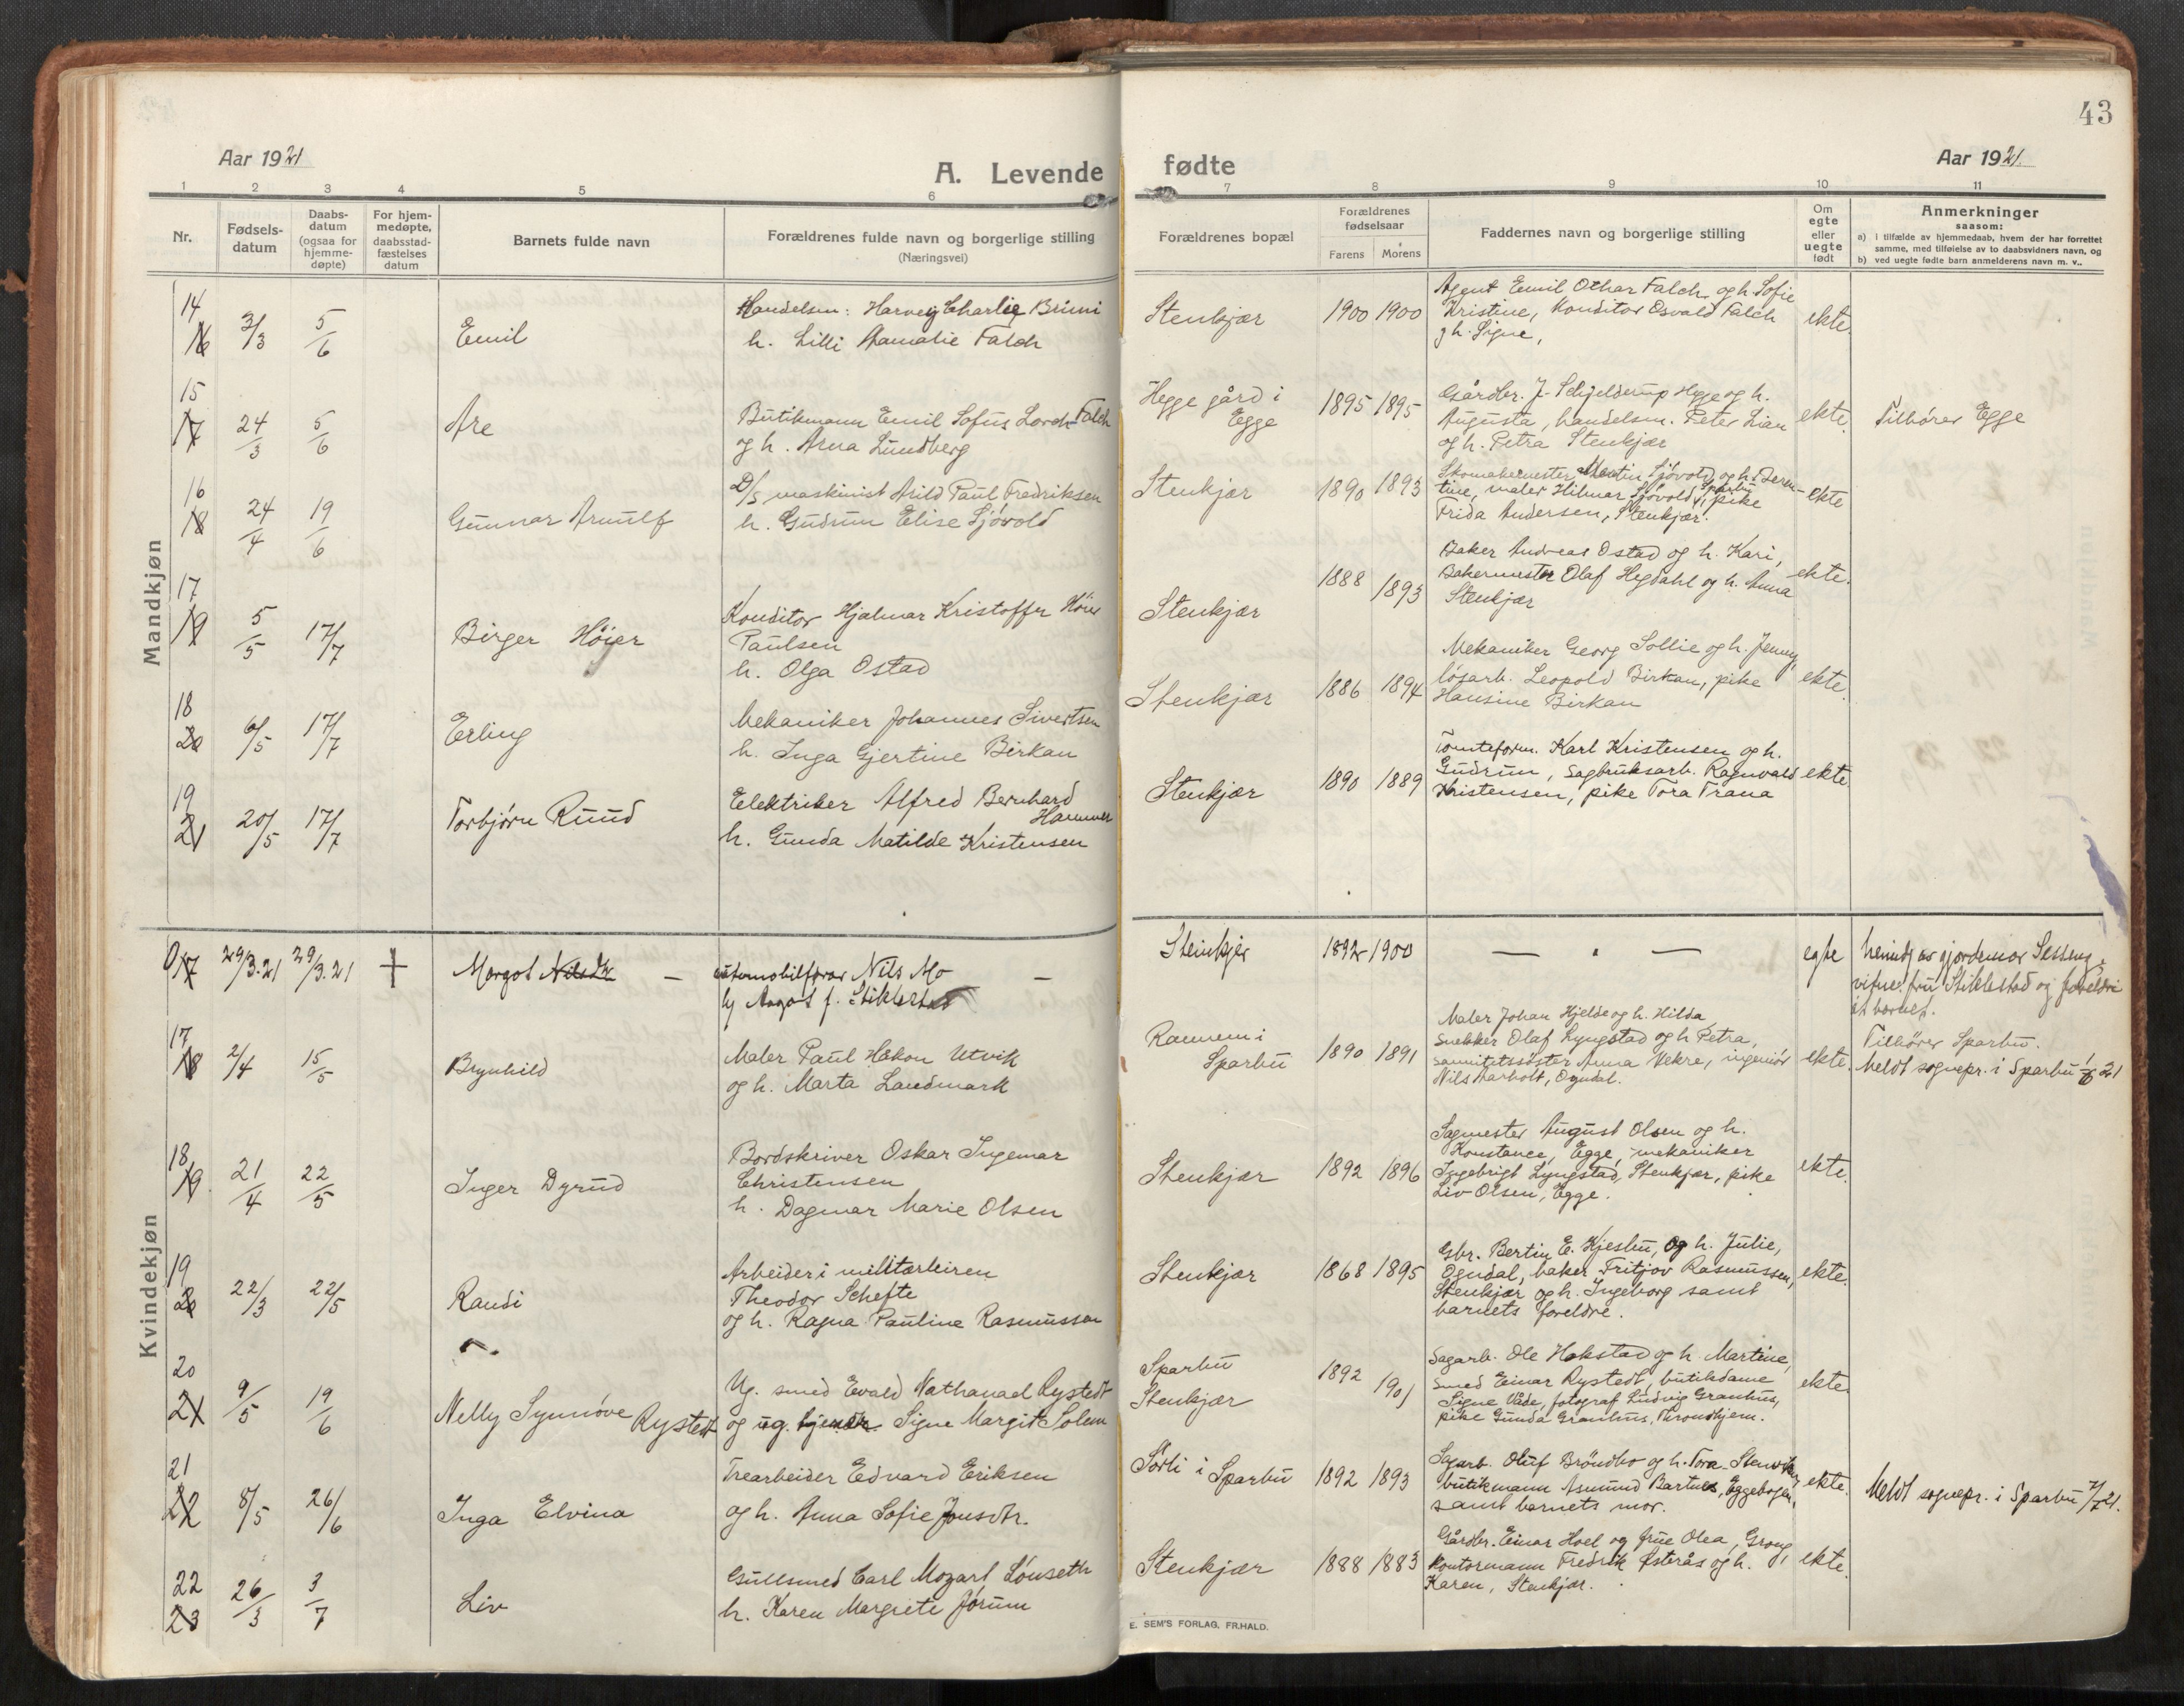 43
Aar 1921
A. Levende fødte
Aar 1921.
1 2 3 4 5 6 7 8 9 10 11
Nr.
Fødsels-
datum
Daabs-
datum
(ogsaa for
hjemme-
døpte)
For hjem-
medøpte,
daabsstad-
fæstelses
datum
Barnets fulde navn
Forældrenes fulde navn og borgerlige stilling
(Næringsvei)
Forældrenes bopæl
Forældrenes
fødselsaar
Farens Morens
Faddernes navn og borgerlige stilling
Om
egte
eller
uegte
født
Anmerkninger
saasom:
a) i tilfælde av hjemmedaab, hvem der har forrettet
samme, med tilføielse av to daabsvidners navn, og
b) ved uegte fødte barn anmelderens navn m. v..
Mandkjøn
14
16
3/3
5/6
Emil
Handelsm: Harvey Charlie Bruni
h. Lilli Amalie Falch
Stenkjær
1900 1900
Agent Emil Othar Falch og h. Sofie
Kristine, Konditor Osvald Falch
og h. Signe,
ekte.
15
17
24/3
5/6
Are
Butikmann Emil Sofus Lorch-Falch
og h. Arna Lundberg
Hegge gård i
Egge
1895 1895
Gårdbr. J. Schjelderup Hegge og h.
Augusta, handelsm. Peter Lian
og h. Petra Stenkjær
ekte.
Tilhører Egge
16
18
24/4
19/6
Gunnar Arnulf
D/S maskinist Arild Paul Fredriksen
h. Gudrun Elise Sjøvold
Stenkjær
1890 1893
Skomakermester Martin Sjøvold og h. Seren-
tine, maler Hilmar Sjøvold, Sparbu, pike
Frida Andersen, Stenkjær.
ekte
17
19
5/5
17/7
Birger Höier
Konditor Hjalmar Kristoffer Höier
Paulsen
h. Olga Ostad
Stenkjær
1888 1893
Baker Andreas Ostad og h. Kari,
Bakermester Olaf Hegdahl og h. Anna
Stenkjær
ekte.
18
20
6/5
17/7
Erling
Mekaniker Johannes Sivertsen
h. Inga Gjertine Birkan
Stenkjær
1886 1894
Mekaniker Georg Sollie og h. Jenny,
løsarb. Leopold Birkan, pike
Hansine Birkan
ekte.
19
21
20/5
17/7
Torbjørn Ruud
Elektriker Alfred Bernhard
Hammer
h. Gunda Matilde Kristensen
Stenkjær
1890 1889
Tomteform. Karl Kristensen og h.
Gudrun, sagbruksarb. Ragnvald
Kristensen, pike Tora Trana
ekte.
Kvindekjøn
17
29/3.21
29/3.21
+
Margot Nilsdtr —
automobilfører Nils Mo —
og Aagot f. Stiklestad
Steinkjer
1892 1900
— . —
egte
hjemdp av gjordemor Sesseng,
vitner: fru Stiklestad og foreldre
til barnet.
17
18
2/4
15/5
Brynhild
Maler Paul Håkon Utvik
og h. Marta Landmark
Ramem i
Sparbu
1890 1891
Maler Johan Hjelde og h. Hilda,
snekker Olaf Lyngstad og h Petra,
sanitetssøster Anna Vekre, ingeniør
Nils Aarholt, Ogndal.
ekte.
Tilhører Sparbu.
Meldt sognepr. i Sparbu 1/6 21
18
19.
21/4
22/5
Inger Dyrud
Bordskriver Oskar Ingemar
Christensen
h. Dagmar Marie Olsen
Stenkjær
1892 1896
Sagmester August Olsen og h.
Konstance, Egge, mekaniker
Ingebrigt Lyngstad, Stenkjær, pike
Liv Olsen, Egge.
ekte.
19
20
22/3
22/5
Randi
Arbeider i militærleiren
Theodor Schefte
og h. Ragna Pauline Rasmussen
Stenkjær
1868 1895
Gbr. Bertin E. Hjeslen, og h. Julie,
Ogndal, baker Fritjov Rasmussen,
Stenkjær og h. Ingeborg samt
barnets foreldre.
ekte.
20
21
9/5
19/6
Nelly Synnöve Rystedt
Ug. smed Evald Nathanael Rystedt
og ug. Signe Margit Solem
Sparbu
Stenkjær
1892 1901
Sagarb. Ole Hokstad og h. Martine,
smed Einar Rystedt, butikdame
Signe Våde, fotograf Ludvig Granhus,
pike Gunda Granhus, Throndhjem.
ekte.
21
22
8/5
26/6
Inga Elvina
Trearbeider Edvard Eriksen
og h. Anna Sofie Jonsdtr.
Sørli i Sparbu
1892 1893
Sagarb. Oluf Bröndbo og h. Tora, Stenvik,
butikmann Asmund Bartnes, Eggebogen,
samt barnets mor.
ekte.
Meldt sognepr. i Sparbu 7/7 21.
22
23
26/3
3/7
Liv
Gullsmed Carl Mozart Lönseth
h. Karen Margrete Jørum
Stenkjær
1888 1883
Gårdbr. Einar Hoel og frue Olea, Grong,
Kontormann Fredrik Østerås og h.
Karen, Stenkjær.
ekte.
E. SEM'S FORLAG, FR.HALD.